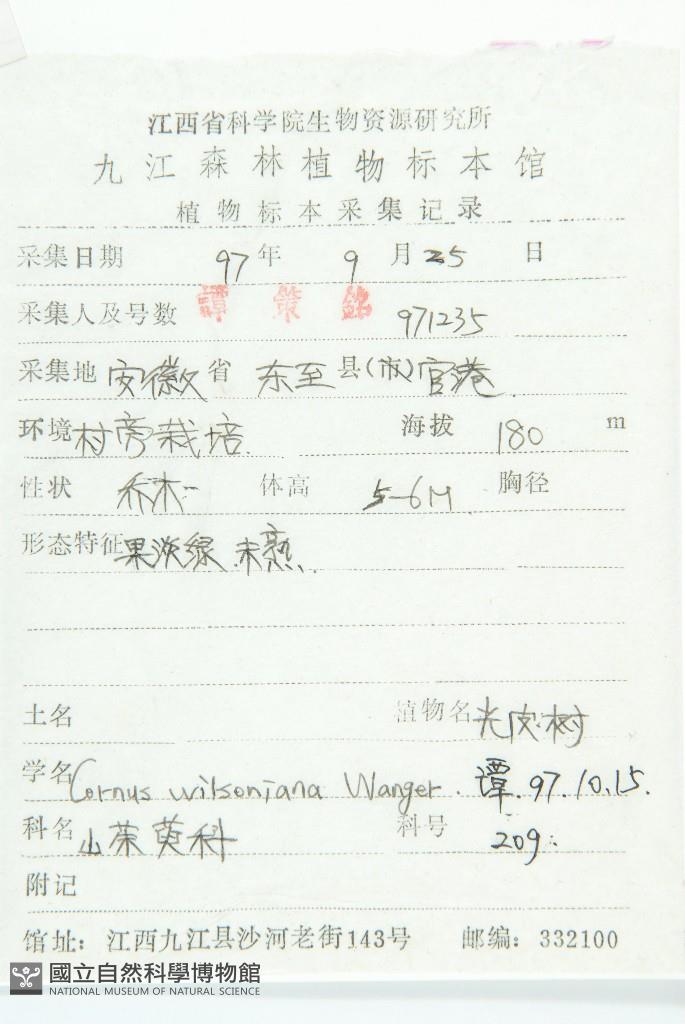 江西省科学院生物资源研究所
九江森林植物标本馆
植物标本采集记录
采集日期 97年 9月25日
采集人及号数 譚策銘 971235
采集地 安徽省 东至县(市)官港
环境 村旁栽培 海拔 180 m
性状 乔木 体高 5-6M 胸径
形态特征 果淡绿.未熟.
土名 植物名 光皮树
学名 Cornus wilsoniana Wanger. 谭.97.10.15.
科名 山茱萸科 科号 209
附记
馆址：江西九江县沙河老街143号 邮编：332100
國立自然科學博物館
NATIONAL MUSEUM OF NATURAL SCIENCE